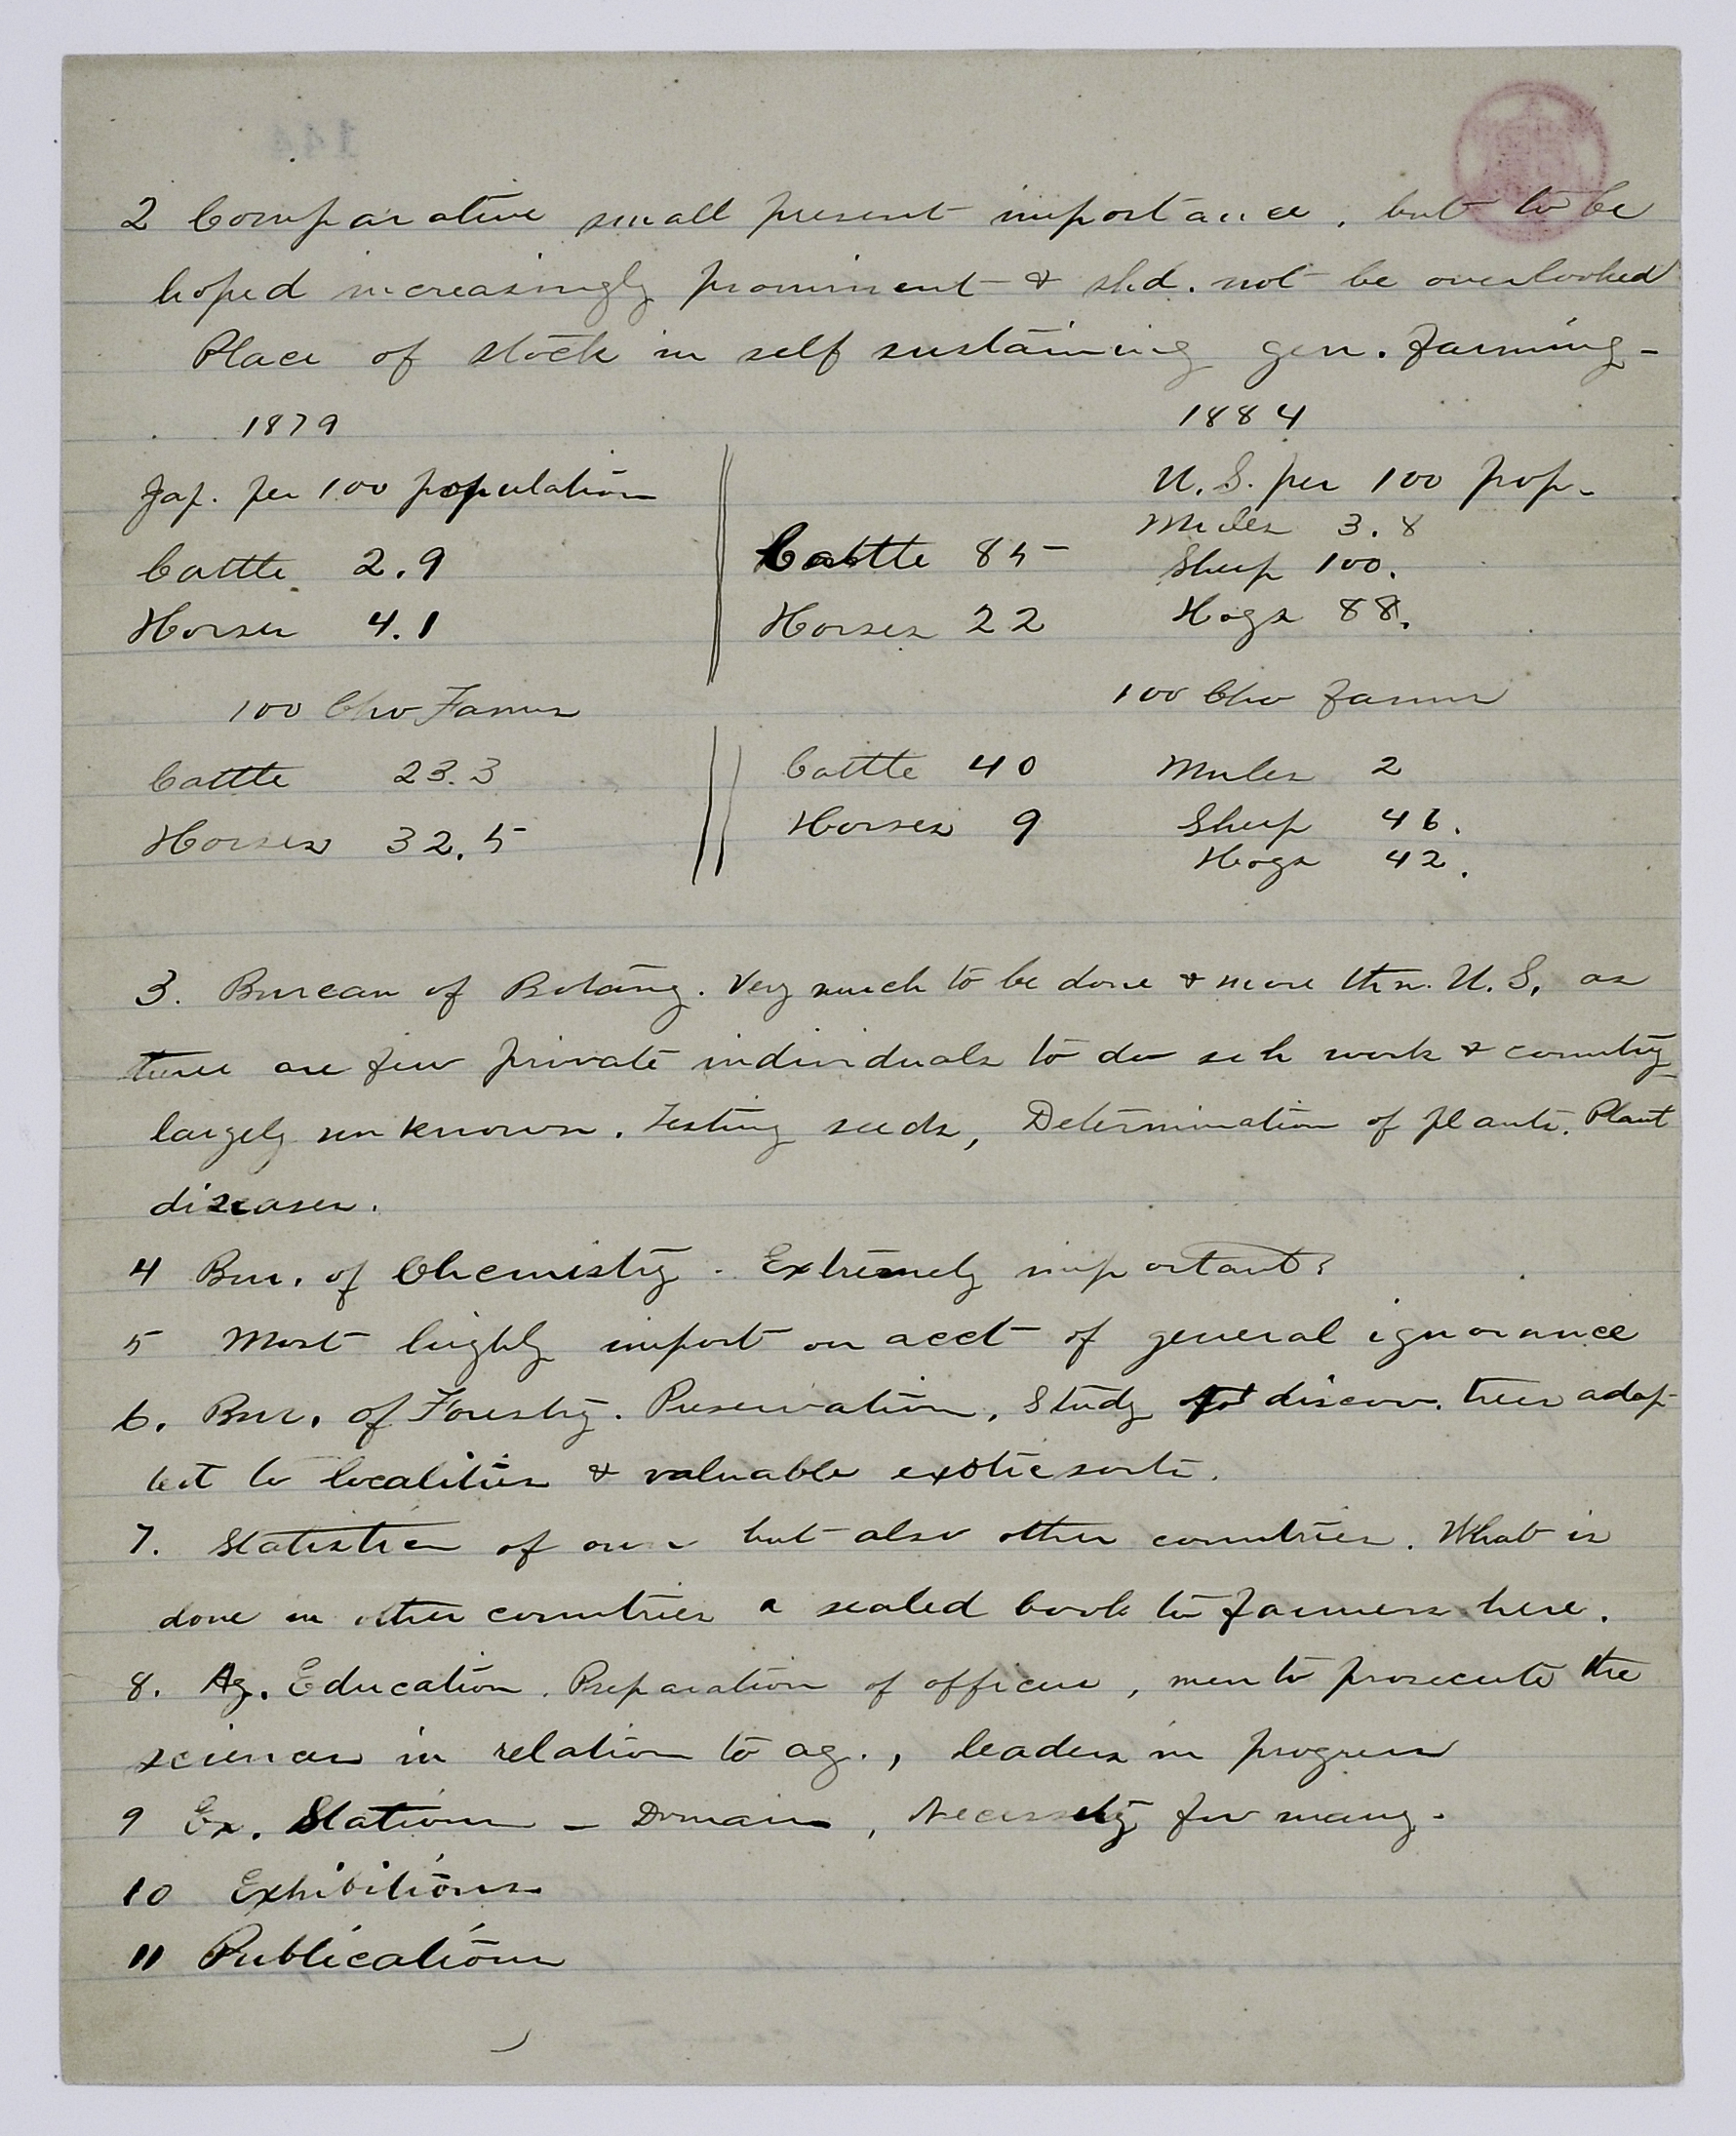 2 Comparative small present importance, but to be
hoped increasingly prominent & shd. not be overlooked
Place of stock in self sustaining gen. farming -
1879 1884
Jap. per 100 population U.S. per 100 pop.
Mules 3.8
Cattle 2.9 Cattle 85 Sheep 100.
Horses 4.1 Horses 22 Hogs 88.
100 Cho Farms 100 Cho farms
Cattle 23.3 Cattle 40 Mules 2
Horses 32.5 Horses 9 Sheep 46.
Hogs 42.
3. Bureau of Botany. Very much to be done & more thn. U.S. as
there are few private individuals to do sch work & country
largely unknown. Testing seeds, Determination of plants. Plant
diseases.
4 Bur. of Chemistry. Extremely important
5 Most highly import on acct of general ignorance
6. Bur. of Forestry. Preservation, Study discov. trees adap-
ted to localities & valuable exotic sorts.
7. Statistics of own but also other countries. What is
done in other countries a sealed book to farmers here.
8. Ag. Education. Preparation of officers, men to prosecute the
sciences in relation to ag., leaders in progress
9 Ex. Stations - Domain, Necessity for many.
10 Exhibitions
11 Publications